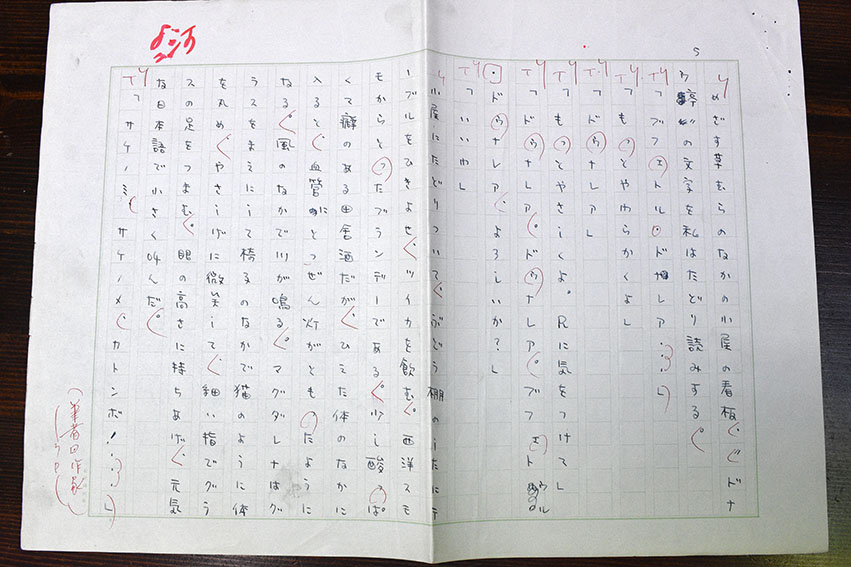 5
めざす草むらのなかの小屋の看板で、ドナ
ウ亭の文字を私はたどり読みする。
「ブフェトル・ドゥナレア……」
「もっとやわらかくよ」
「ドゥナレア」
「もっとやさしくよ。Rに気をつけて」
「ドゥナレア。ドゥナレア。ブフェトゥル
・ドゥナレア。よろしいか？」
「いいわ」
小屋にたどりついて、ぶどう棚のしたにテ
ーブルをひきよせ、ツイカを飲む。西洋スモ
モからとったブランデーである。少し酸っぱ
くて癖のある田舎酒だが、ひえた体のなかに
入ると、血管にとつぜん灯がともったように
なる。風のなかで川が鳴る。マグダレナはグ
ラスをまえにして椅子のなかで猫のように体
を丸め、やさしげに微笑して、細い指でグラ
スの足をつまむ。眼の高さに持ちあげ、元気
な日本語で小さく叫んだ。
「サケノミ、サケノメ、カトンボ！……」
（筆者旧作家